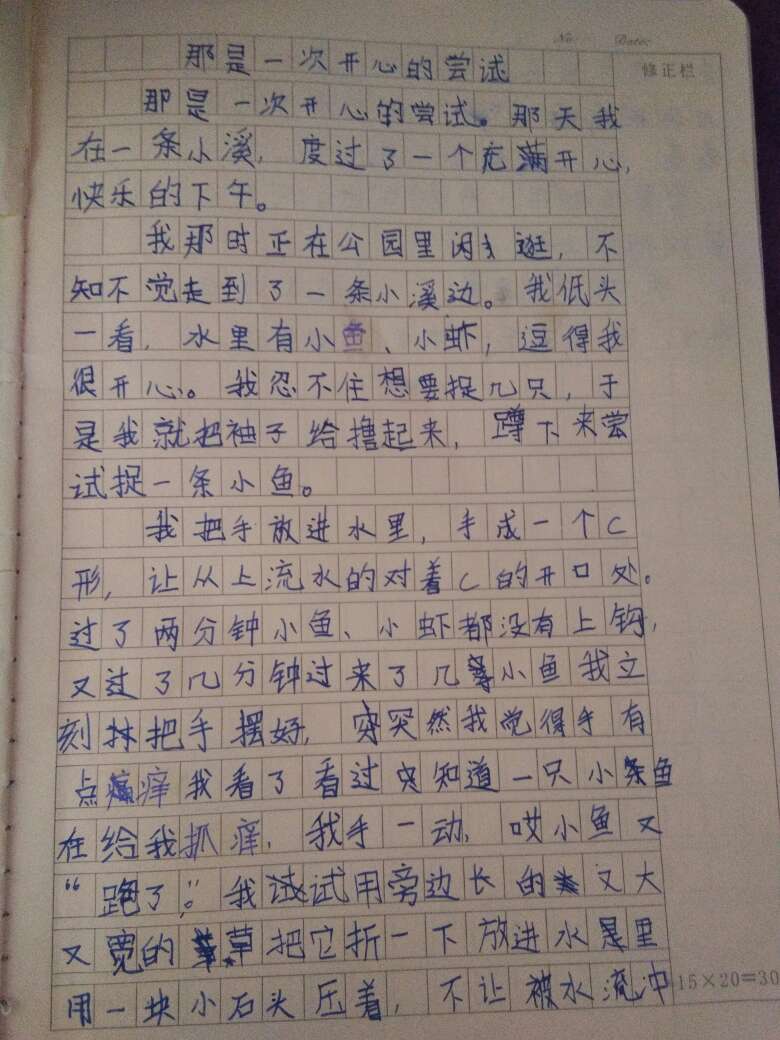 No.    Date:
修正栏
那是一次开心的尝试
那是一次开心的尝试。那天我
在一条小溪，度过了一个充满开心，
快乐的下午。
我那时正在公园里闲逛，不
知不觉走到了一条小溪边。我低头
一看，水里有小鱼、小虾，逗得我
很开心。我忍不住想要捉几只，于
是我就把袖子给撸起来，蹲下来尝
试捉一条小鱼。
我把手放进水里，手成一个C
形，让从上流水的对着C的开口处。
过了两分钟小鱼、小虾都没有上钩，
又过了几分钟过来了几条小鱼我立
刻把手摆好，突然我觉得手有
点痒我看了看过知道一只小鱼
在给我抓痒，我手一动，哎小鱼又
“跑了”。我试用旁边长的又大
又宽的草把它折一下放进水里
用一块小石头压着，不让被水流冲
15×20=30